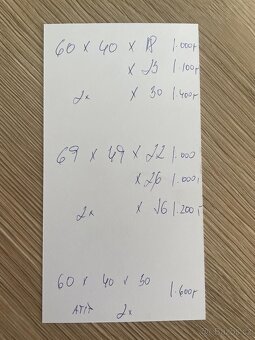 60 x 40 x 18 1.000,-
x 25 1.100,-
2x x 30 1.400,-
69 x 49 x 22 1.000
x 26 1.000,-
2x x 36 1.200,-
60 x 40 x 30 1.600,-
2x